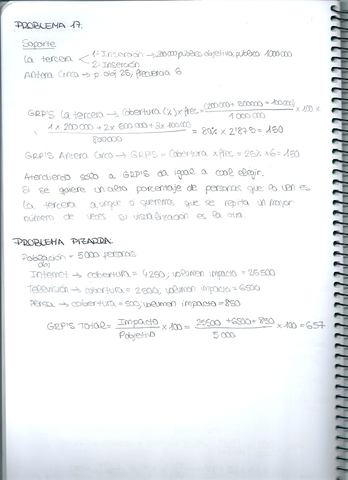 PROBLEMA 17.
Soporte
La tercera 1ª Inserción → 200000 público objetivo, público 1000000
2ª Inserción
Antena Cinco → p. obj 25, frecuencia 6
GRP'S La tercera → Cobertura (%) x frec = (200000 + 500000 + 100000) / 1000000 x 100 x
1 x 200000 + 2 x 500000 + 3x 100000 / 800000 = 80% x 2'875 = 150
GRP'S Antena Cinco → GRPS = Cobertura x frec = 25% x 6 = 150
Atendiendo sólo a GRP'S da igual a cual elegir.
Si se quiere un alto porcentaje de personas que lo ven es
la tercera aunque si queremos que se repita un mayor
número de veces su visualización es la otra.
PROBLEMA PIZARRA.
Población = 5000 personas
obj
Internet → cobertura = 4250, volumen impacto = 25500
Televisión → cobertura = 2500, volumen impacto = 6500
Prensa → cobertura = 500, volumen impacto = 850
GRP'S TOTAL = Impacto / Pobjetivo x 100 = 25500 + 6500 + 850 / 5000 x 100 = 657